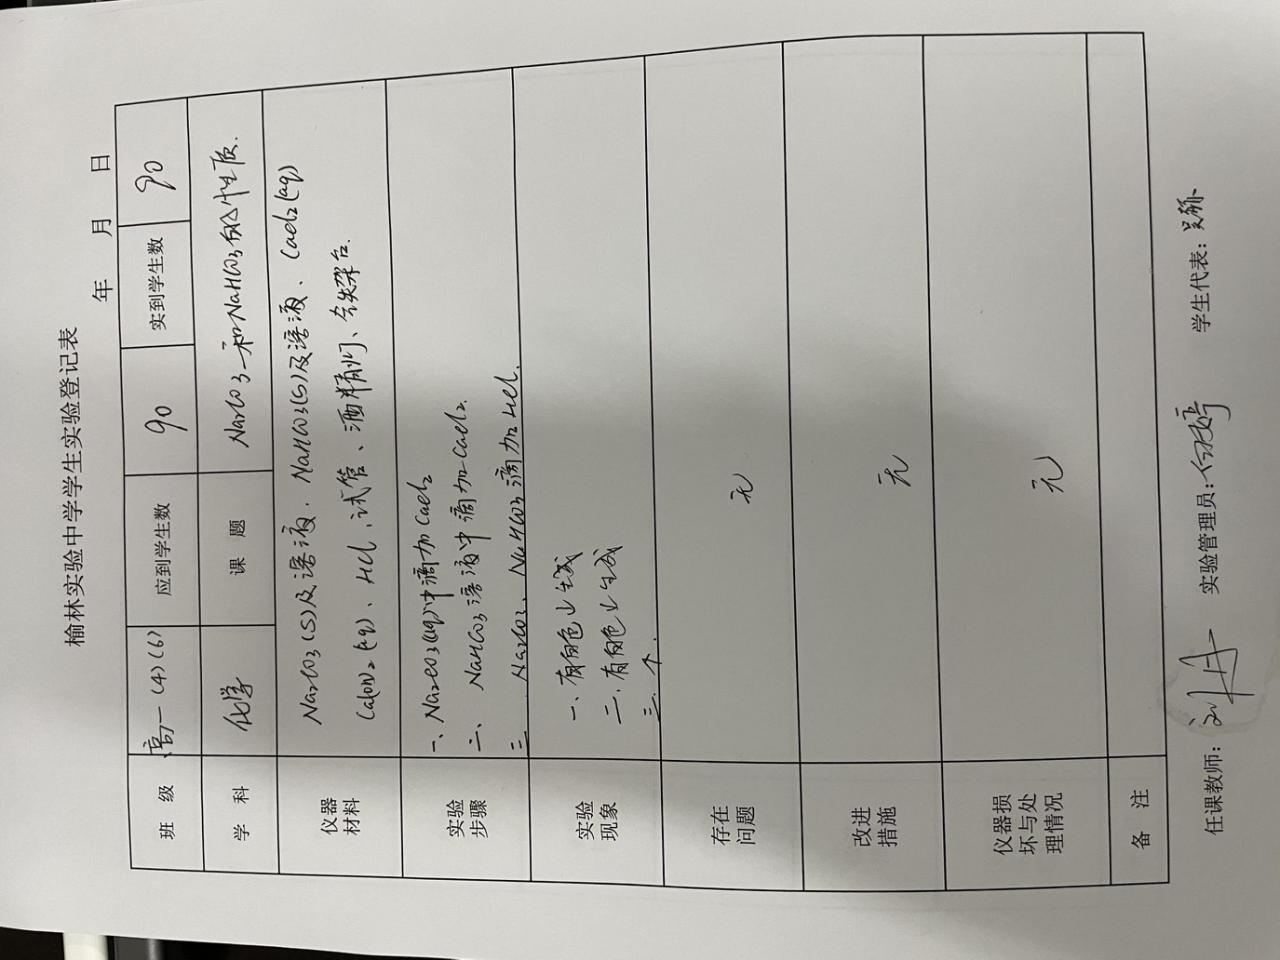 榆林实验中学学生实验登记表
年 月 日
班 级 高一(4)(6) 应到学生数 90 实到学生数 90
学 科 化学 课 题 Na2CO3和NaHCO3的性质.
仪器
材料
Na2CO3(S)及溶液、NaHCO3(S)及溶液、CaCl2(aq)
Ca(OH)2(aq)、HCl、试管、酒精灯、铁架台.
实验
步骤
一、Na2CO3(aq)中滴加CaCl2
二、NaHCO3溶液中滴加CaCl2.
三、Na2CO3、NaHCO3滴加HCl.
实验
现象
一、有白色↓生成
二、有白色↓生成
三、↑.
存在
问题
无
改进
措施
无
仪器损
坏与处
理情况
无
备 注
任课教师: 实验管理员: 学生代表: